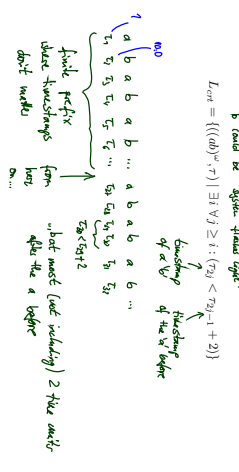 b could be system flashes light.
L_{crt} = {((ab)^ω, τ) | ∃i ∀j ≥ i : (τ_{2j} < τ_{2j-1} + 2)}
timestamp of a 'b'
timestamp of the 'a' before
a b a b a b ... a b a b a b ...
τ₁ τ₂ τ₃ τ₄ τ₅ τ₆ ...
τ₃₀ < τ₂₉ + 2
finite prefix where timestamps don't matter
from here on...
...b at most (not including) 2 time units after the a before